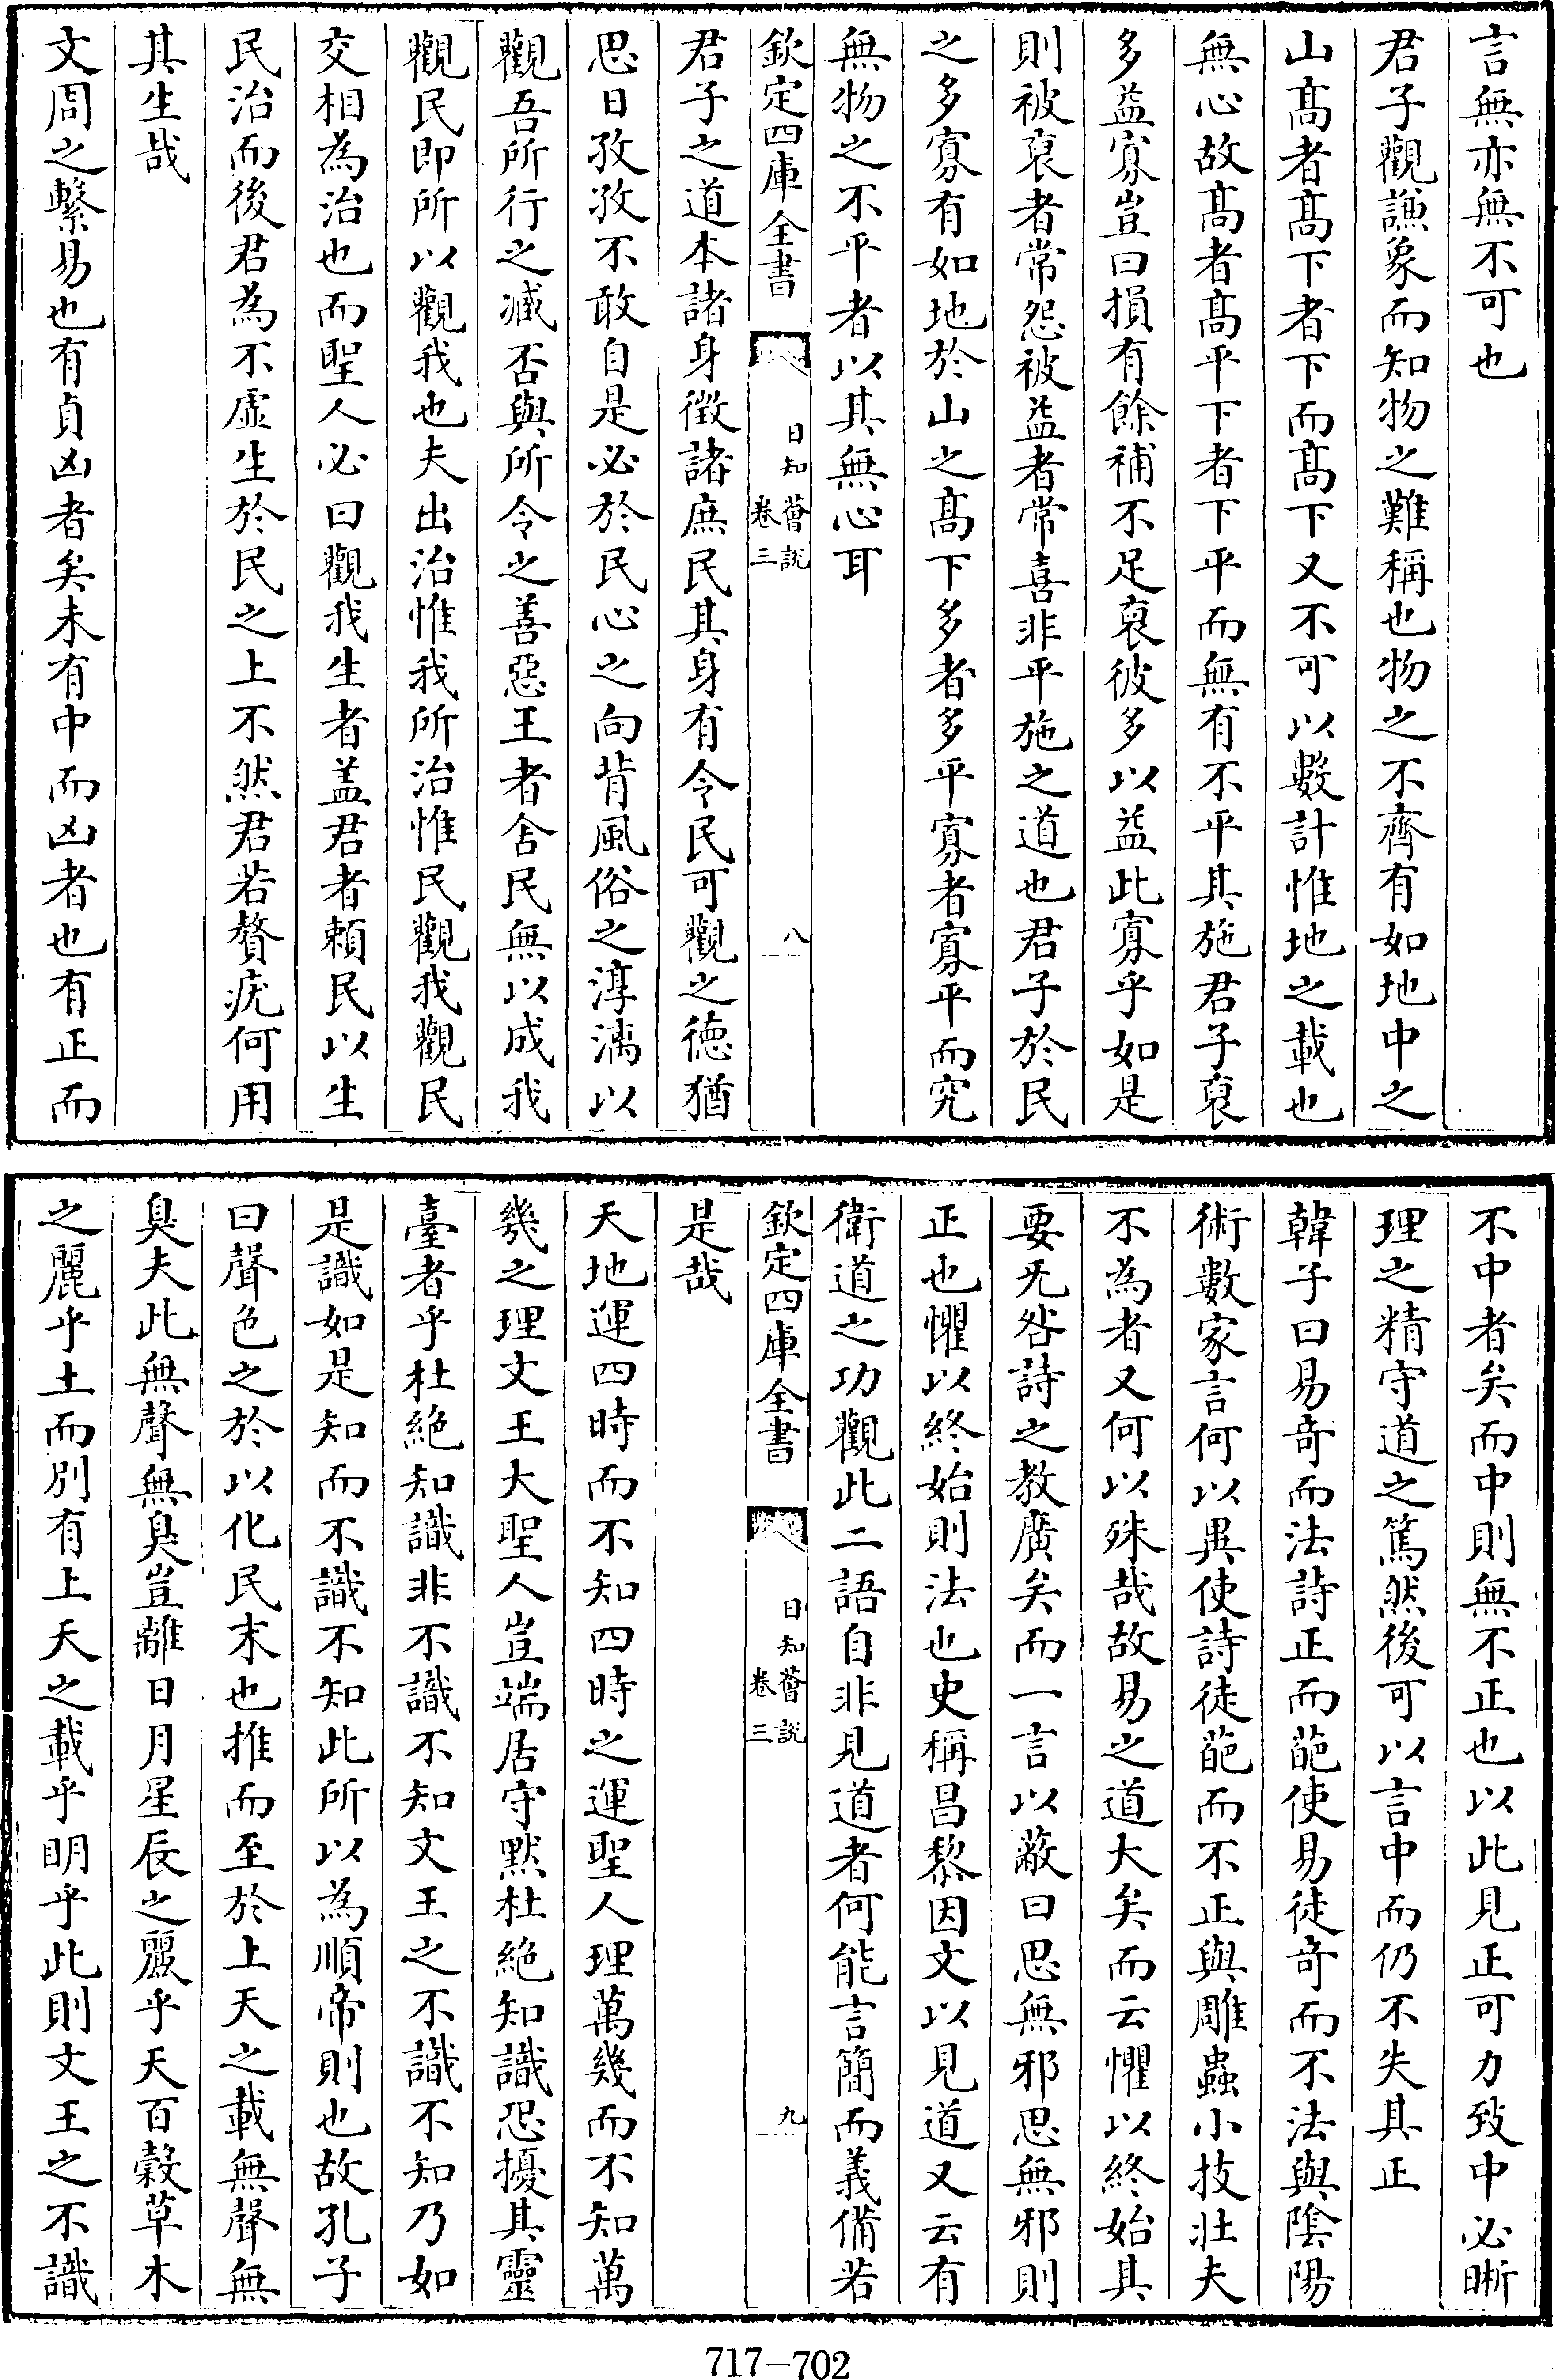 言無亦無不可也
君子觀謙象而知物之難稱也物之不齊有如地中之
山髙者髙下者下而髙下又不可以數計惟地之載也
無心故髙者髙平下者下平而無有不平其施君子裒
多益寡豈曰損有餘補不足裒彼多以益此寡乎如是
則被裒者常怨被益者常喜非平施之道也君子於民
之多寡有如地於山之髙下多者多平寡者寡平而究
無物之不平者以其無心耳
欽定四庫全書
日知薈說
卷三
八
君子之道本諸身徴諸庶民其身有令民可觀之德猶
思日孜孜不敢自是必於民心之向背風俗之淳漓以
觀吾所行之臧否與所令之善惡王者舍民無以成我
觀民即所以觀我也夫出治惟我所治惟民觀我觀民
交相為治也而聖人必曰觀我生者盖君者賴民以生
民治而後君為不虛生於民之上不然君若贅疣何用
其生哉
文周之繫易也有貞凶者矣未有中而凶者也有正而
不中者矣而中則無不正也以此見正可力致中必晰
理之精守道之篤然後可以言中而仍不失其正
韓子曰易奇而法詩正而葩使易徒奇而不法與隂陽
術數家言何以異使詩徒葩而不正與雕蟲小技壯夫
不為者又何以殊哉故易之道大矣而云懼以終始其
要无咎詩之教廣矣而一言以蔽曰思無邪思無邪則
正也懼以終始則法也史稱昌黎因文以見道又云有
衛道之功觀此二語自非見道者何能言簡而義備若
欽定四庫全書
日知薈說
卷三
九
是哉
天地運四時而不知四時之運聖人理萬幾而不知萬
幾之理文王大聖人豈端居守默杜絶知識恐擾其靈
臺者乎杜絶知識非不識不知文王之不識不知乃如
是識如是知而不識不知此所以為順帝則也故孔子
曰聲色之於以化民末也推而至於上天之載無聲無
臭夫此無聲無臭豈離日月星辰之麗乎天百糓草木
之麗乎土而別有上天之載乎明乎此則文王之不識
717-702